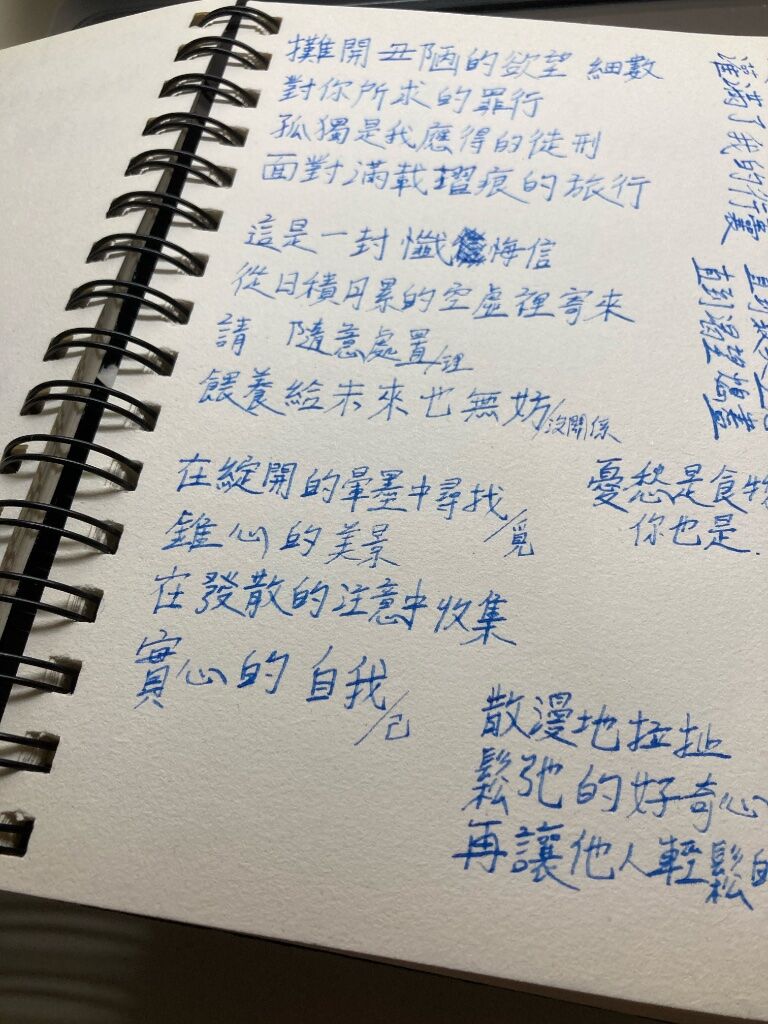 攤開丑陋的欲望 細數
對你所求的罪行
孤獨是我應得的徒刑
面對滿載摺痕的旅行
這是一封懺悔信
從日積月累的空虛裡寄來
請 隨意處置/理
餵養給未來也無妨/沒關係
在綻開的暈墨中尋找/覓
錐心的美景
在發散的注意中收集
實心的自我/己
灌滿了我的行囊
直到渴望滿盡
憂愁是食物
你也是.
散漫地拉扯
鬆弛的好奇心
再讓他人輕鬆